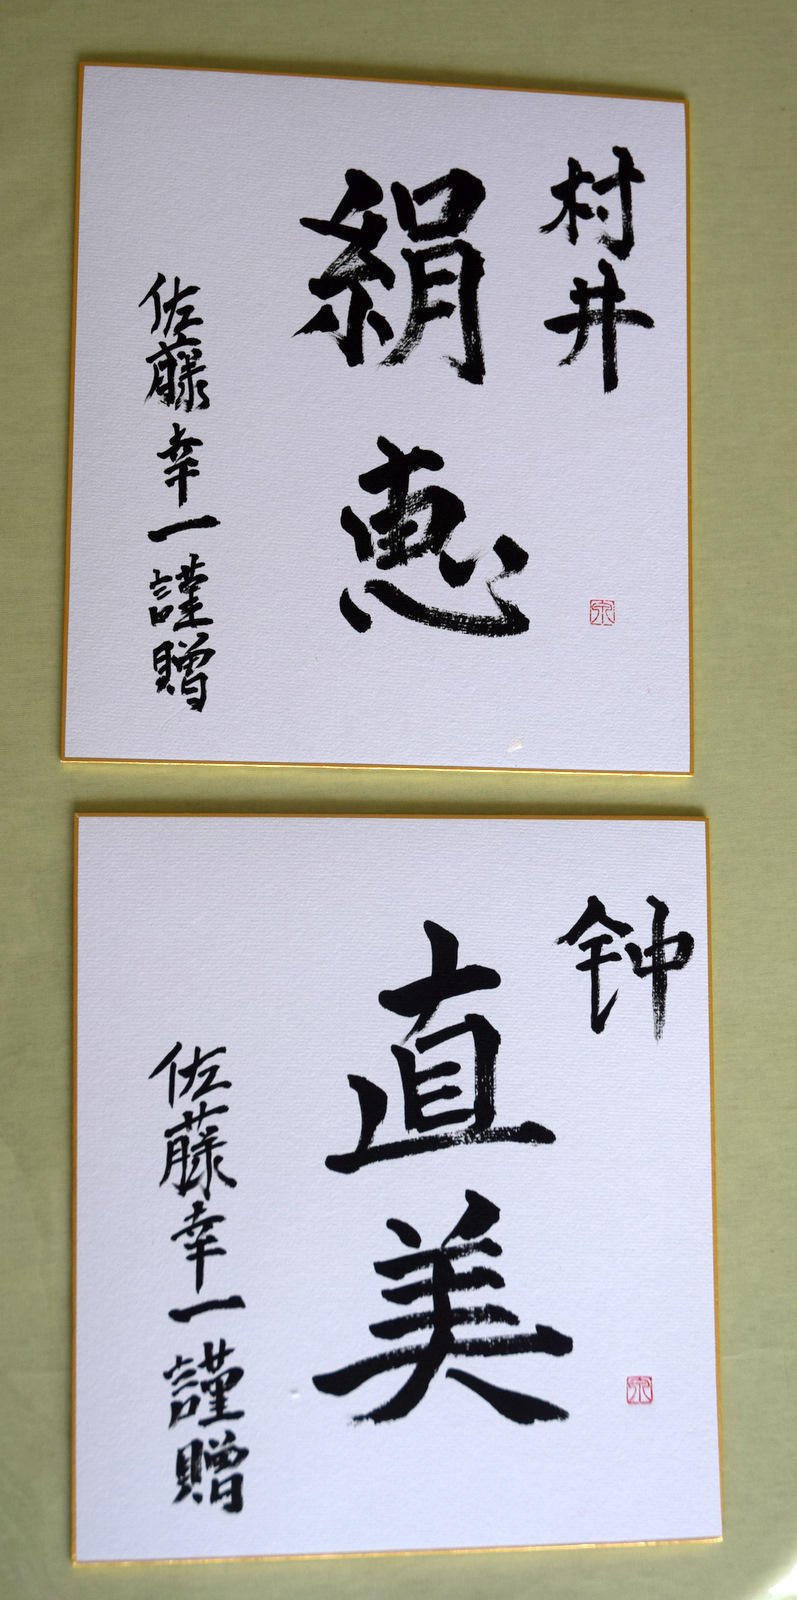 村井
絹恵
佐藤幸一謹贈
钟
直美
佐藤幸一謹贈